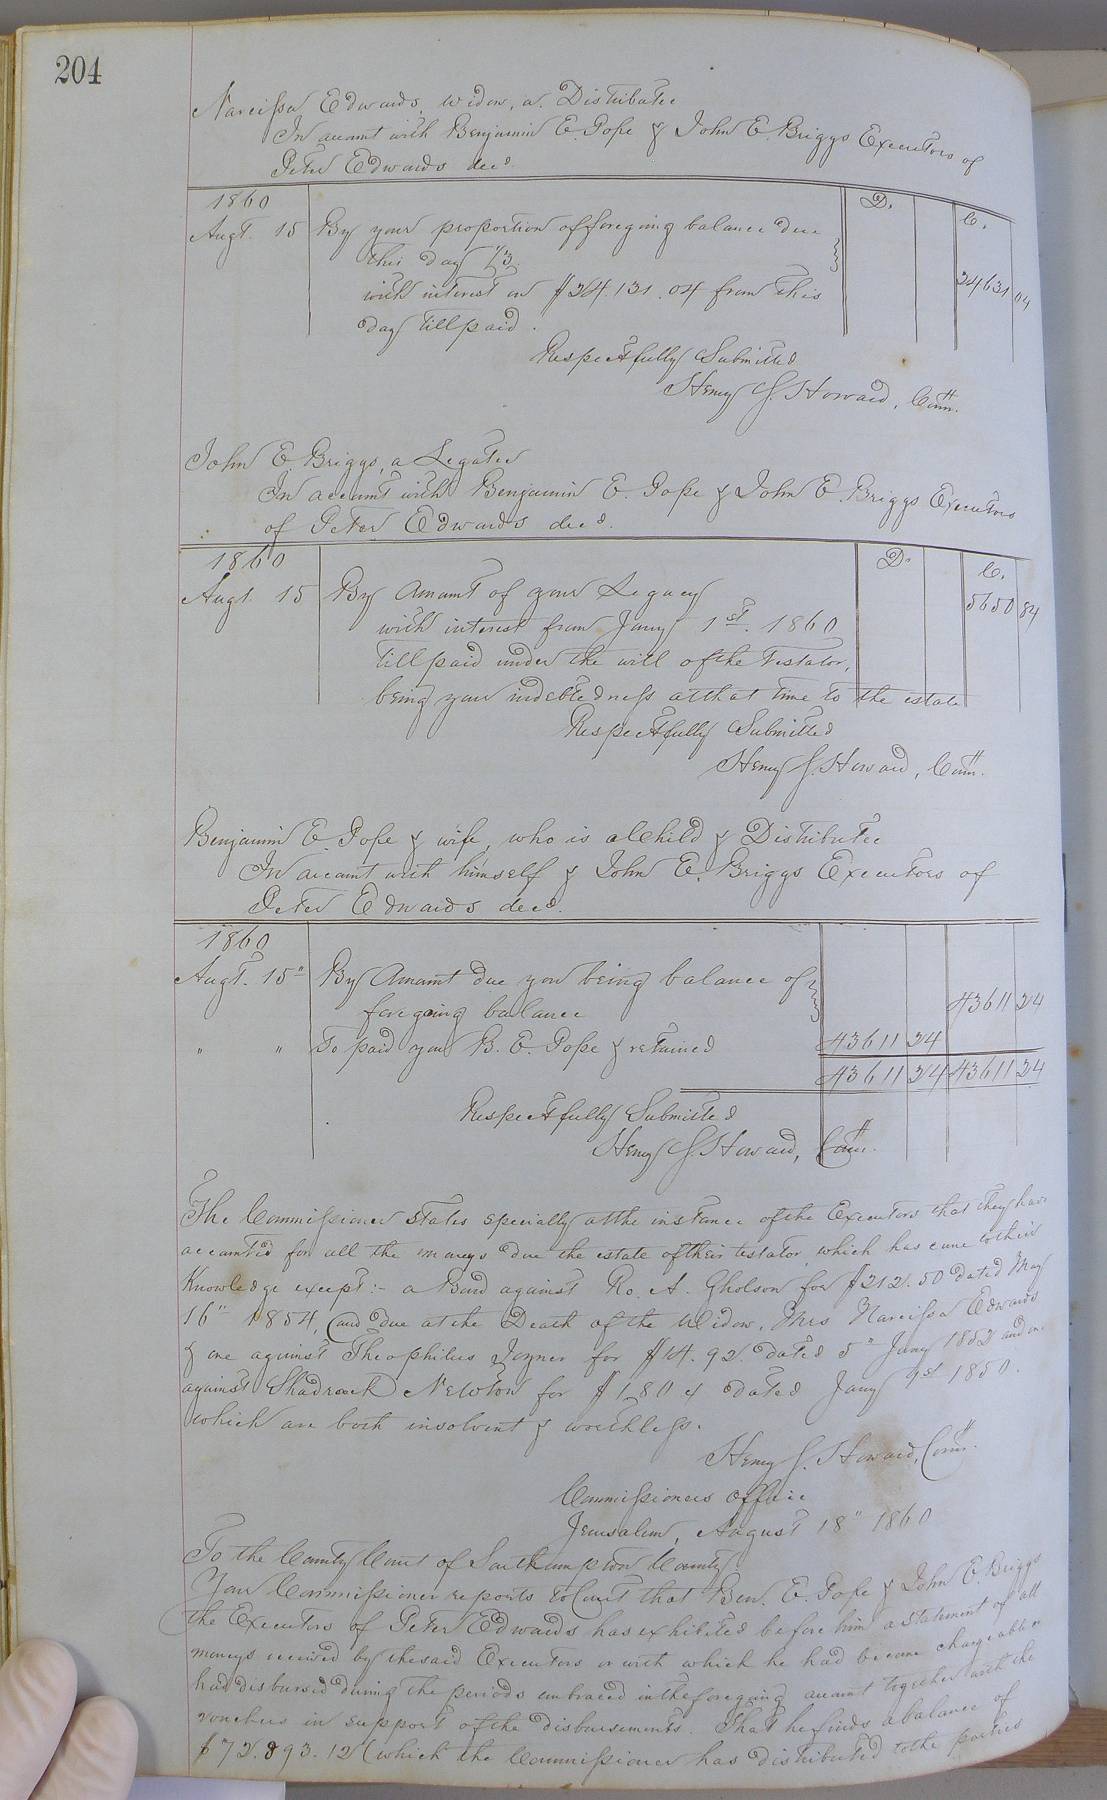 204
Narcissa Edwards, widow, a Distributee
In account with Benjamin E. Pope & John E. Briggs Executors of
Peter Edwards decd.
1860 D. C.
Augt. 15 By your proportion of foregoing balance due
this day 1/3
with interest on $24.131.04 from this 24631 04
day till paid.
Respectfully Submitted
Henry J. Howard, Comr.
John E. Briggs, a Legatee
In account with Benjamin E. Pope & John E. Briggs Executors
of Peter Edwards decd.
1860 D. C.
Augt. 15 By Amount of your Legacy 5650 84
with interest from Jany 1st. 1860
till paid under the will of the Testator,
being your indebtedness at that time to the estate
Respectfully Submitted
Henry J. Howard, Comr.
Benjamin E. Pope & wife, who is a Child & Distributee
In account with himself & John E. Briggs Executors of
Peter Edwards decd.
1860
Augt. 15" By Amount due you being balance of
foregoing balance 43611 24
" " To paid you B. E. Pope & retained 43611 24
43611 24 43611 24
Respectfully Submitted
Henry J. Howard, Comr.
The Commissioner states specially at the instance of the Executors that they have
accounted for all the moneys due the estate of their testator, which has come to their
Knowledge except:- a Bond against Ro. A. Gholson for $212.50 dated May
16" 1854, (and due at the Death of the Widow, Mrs Narcissa Edwards
& one against Theophilus Joyner for $14.92. dated 5" Jany 1852 and one
against Shadrack Newton for $1.80 dated Jany 1st 1850.
which are both insolvent & worthless.
Henry J. Howard, Comr.
Commissioners office
Jerusalem, August 18" 1860
To the County Court of Southampton County
Your Commissioner reports to Court that Ben. E. Pope & John E. Briggs
the Executors of Peter Edwards has exhibited before him a statement of all
moneys received by the said Executors or with which he had become chargeable or
had disbursed during the periods embraced in the foregoing account together with the
vouchers in support of the disbursements. That he finds a balance of
$72.893.12 (which the Commissioner has distributed to the parties